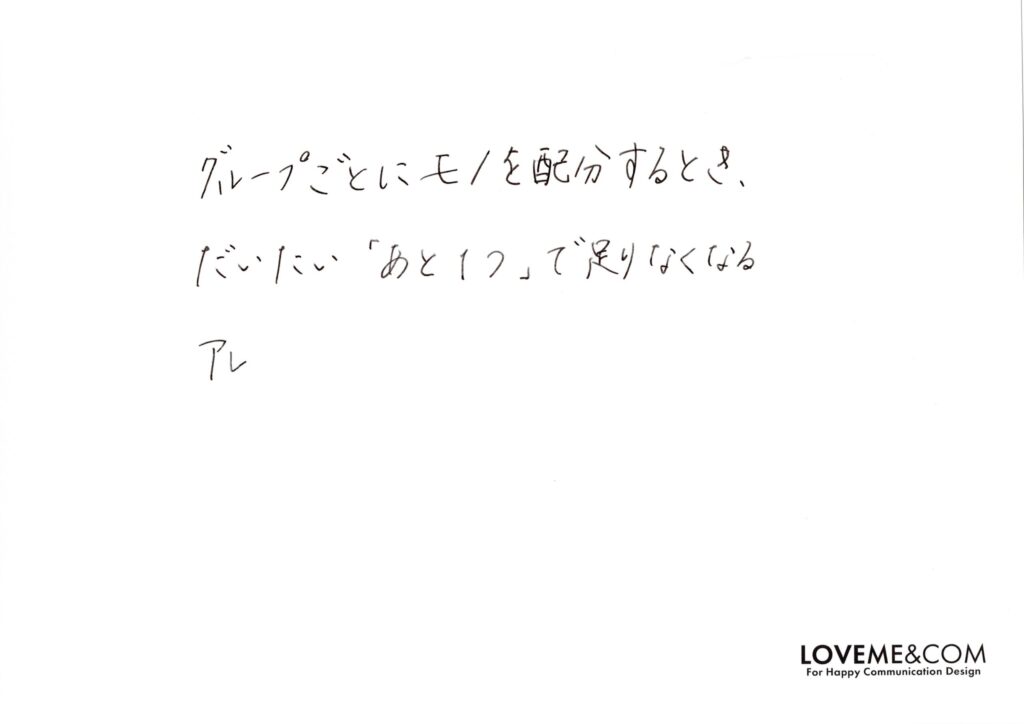 グループごとにモノを配分するとき、
だいたい「あと1つ」で足りなくなる
アレ
LOVEME&COM
For Happy Communication Design